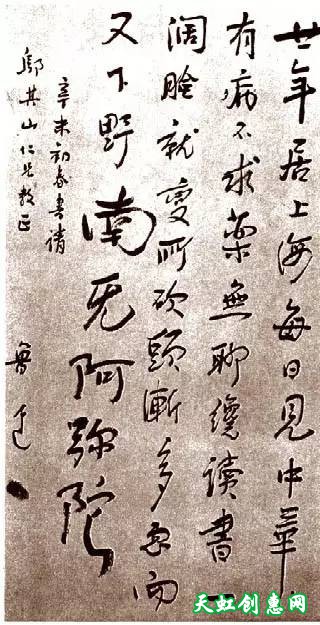 廿年居上海每日見中華
有病不求藥無聊纔讀書一
濶臉就變所砍頭漸多忽而
又下野南无阿弥陀
辛未初春書請
鄔其山仁兄教正
魯迅
天虹创惠网